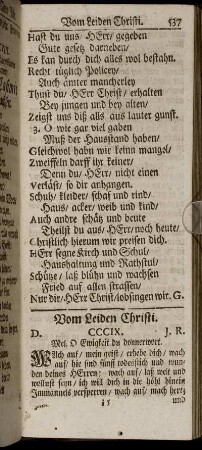 Vom Leiden Christi. 537
Hast du uns/ HErr/ gegeben
Gute gesetz darneben/
Es kan durch dich alles wol bestahn.
Recht tüglich Policey/
Auch ämter mancherley
Thust du/ HErr Christ/ erhalten
Bey jungen und bey alten/
Zeigst uns diß alls aus lauter gunst.
3. O wie gar viel gaben
Muß der Hausstand haben/
Gleichwol habn wir keinn mangel/
Zweiffeln darff ihr keiner/
Denn du/ HErr/ nicht einen
Verläst/ so dir anhangen.
Schuh/ kleider/ schaf und rind/
Haus/ acker/ weib und kind/
Auch andre schätz und beute
Theilst du aus/ HErr/ noch heute/
Christlich hierum wir preisen dich.
HErr segne Kirch und Schul/
Haushaltung und Rathstul/
Schütze/ laß blühn und wachsen
Fried auf allen strassen/
Nur dir/ HErr Christ/ lobsingen wir. G.
Vom Leiden Christi.
D. CCCIX. J. R.
Mel. O Ewigkeit du donnerwort.
Wach auf/ mein geist/ erhebe dich/ wach
auf/ hie sind fünff todesstich und wun-
den deines HErren; wach auf/ laß welt und
wollust seyn/ ich will dich in die höhl hinein
Immanuels versperren/ wach auf/ mach hertz
und